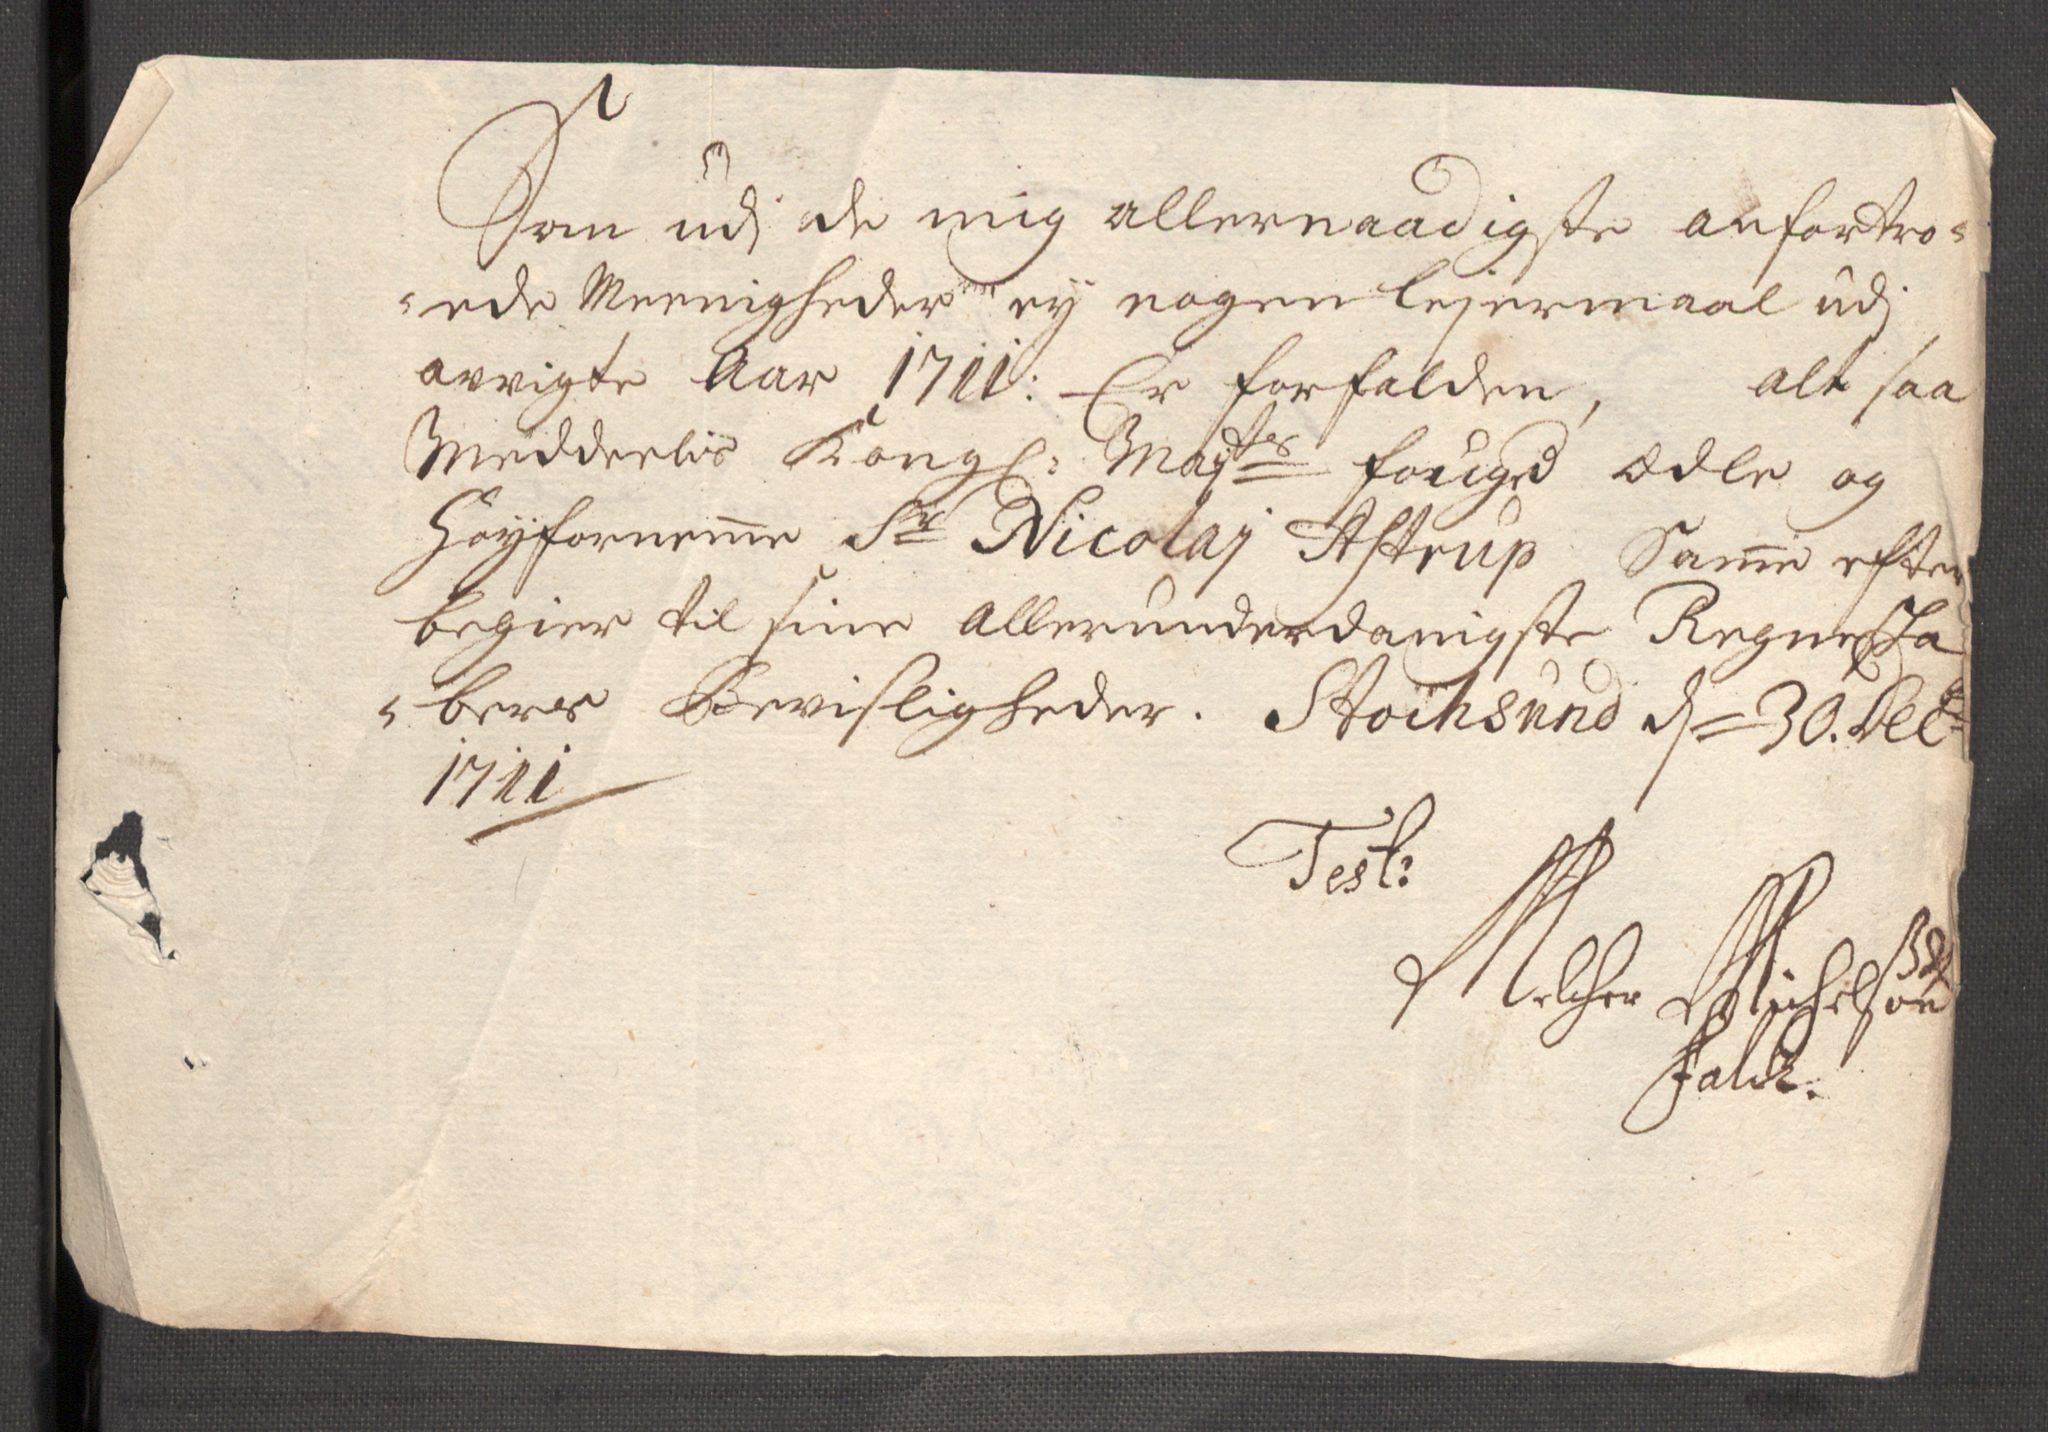 Som udj de mig allernaadigste anfortro-
-ede Meenigheder ey nogen lejermaal udj
avvigte Aar 1711: Er forfalden, alt saa
Meddeelis Kongl: Maj<sup>ts</sup> fougd ædle og
Høyforneme Sr Nicolaj Astrup Same efter
begier til sine Allerunderdanigste Regnescha
-bers Bevisligheder. Stochsund d. 30. Dec
1711
Test:
Melcher Michelsøn
Falch.